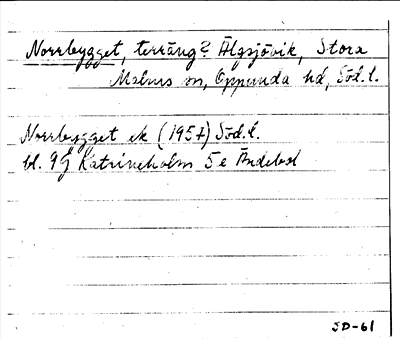 Norrbygget, terräng? Älgsjövik, Stora
Malms sn, Oppunda hd, Söd.l.
Norrbygget ek (1957) Söd.l.
bl. 9G Katrineholm 5e Ändebol
SD-61